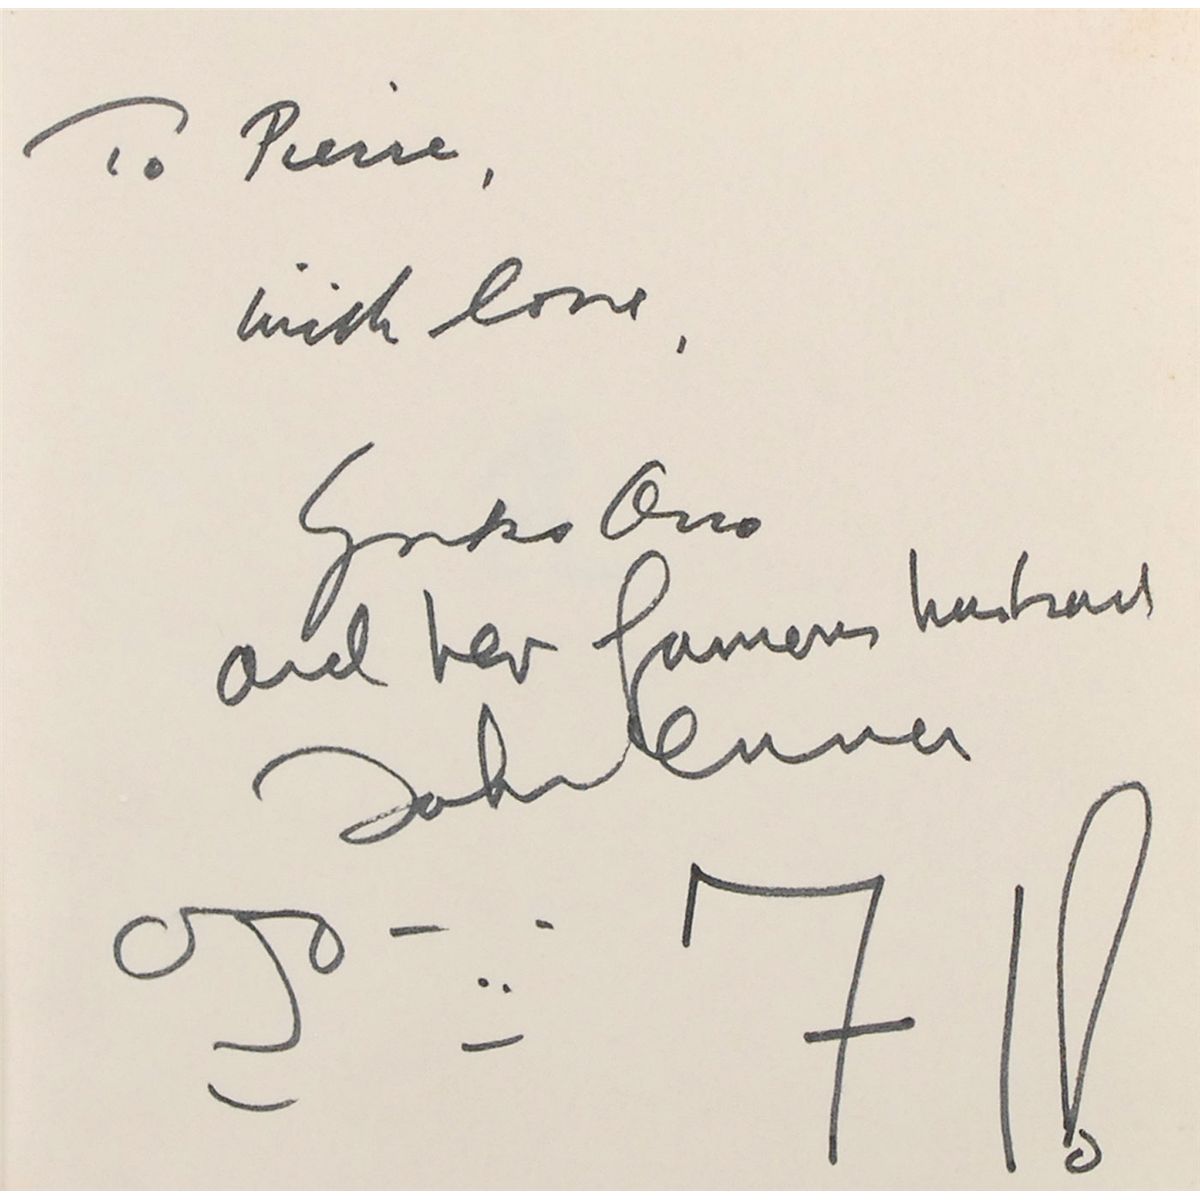 To Pierre,
with love,
Yoko Ono
and her famous husband
John Lennon